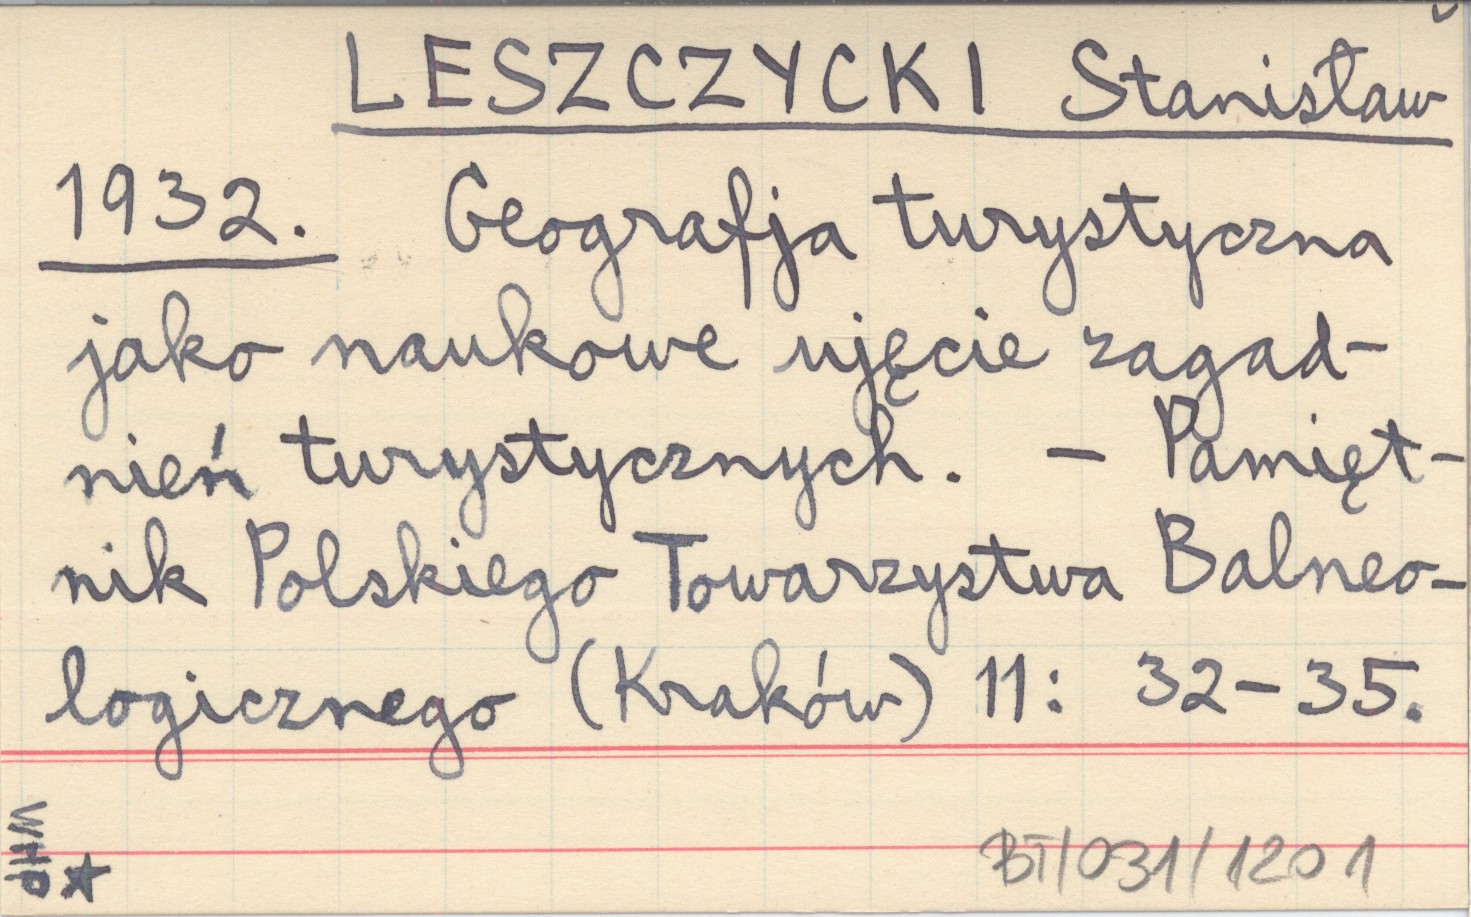 LESZCZYCKI Stanisław
1932. Geografja turystyczna
jako naukowe ujęcie zagad-
nień turystycznych. – Pamięt-
nik Polskiego Towarzystwa Balneo-
logicznego (Kraków) 11: 32–35.
WHP
BT/031/1201